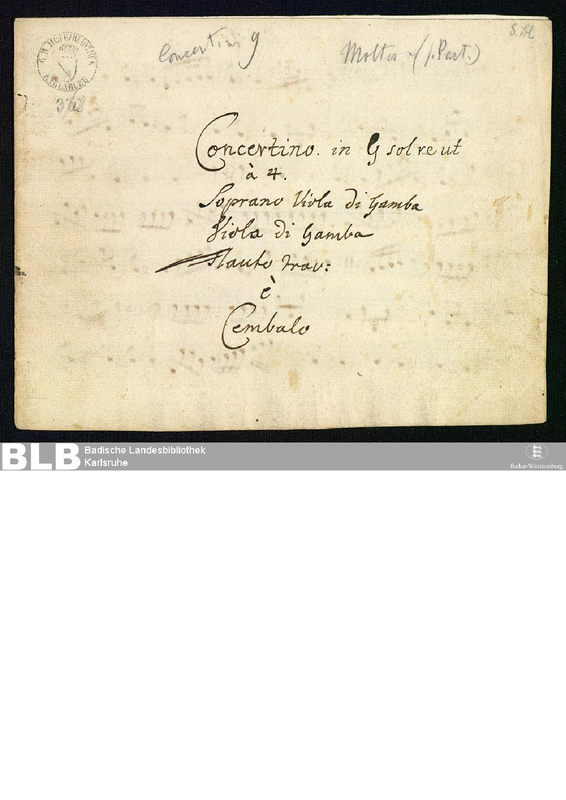 Concertini 9
Molter (s. Part.)
8. Bl.
G. H. HOFBIBLIOTHEK
KARLSRUHE
368
Concertino. in G sol re ut
à 4.
Soprano Viola di Gamba
Viola di Gamba
Flauto trav:
è
Cembalo
BLB Badische Landesbibliothek
Karlsruhe
Baden-Württemberg